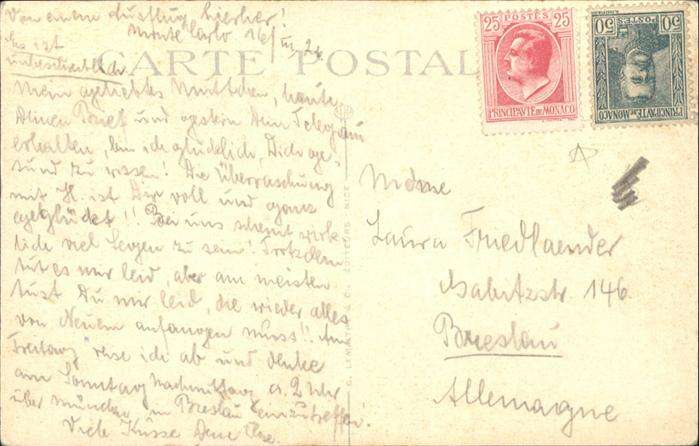 Von einem Ausflug hierher!
Monte Carlo 16/III 26
Es ist
unbeschreiblich
CARTE POSTALE
Mein geliebtes Muttchen, heute
Deinen Brief und gestern Dein Telegramm
erhalten, bin ich glücklich, Dich ge-
sund zu wissen! Die Überraschung
mit H. ist Dir voll und ganz
geglückt!! Bei uns scheint wirk-
lich viel Segen zu sein! Trotzdem
tut es mir leid, aber am meisten
tust Du mir leid, die wieder alles
von Neuem anfangen muss!! Am
Freitag reise ich ab und denke
am Sonntag Nachmittag a. 2 Uhr
über München in Breslau einzutreffen!
Viele Küsse Deine
25 POSTES 25
PRINCIPAUTÉ DE MONACO
50 POSTES 50
PRINCIPAUTÉ DE MONACO
Laura Friedlaender
Gabitzstr. 146
Breslau
Allemagne